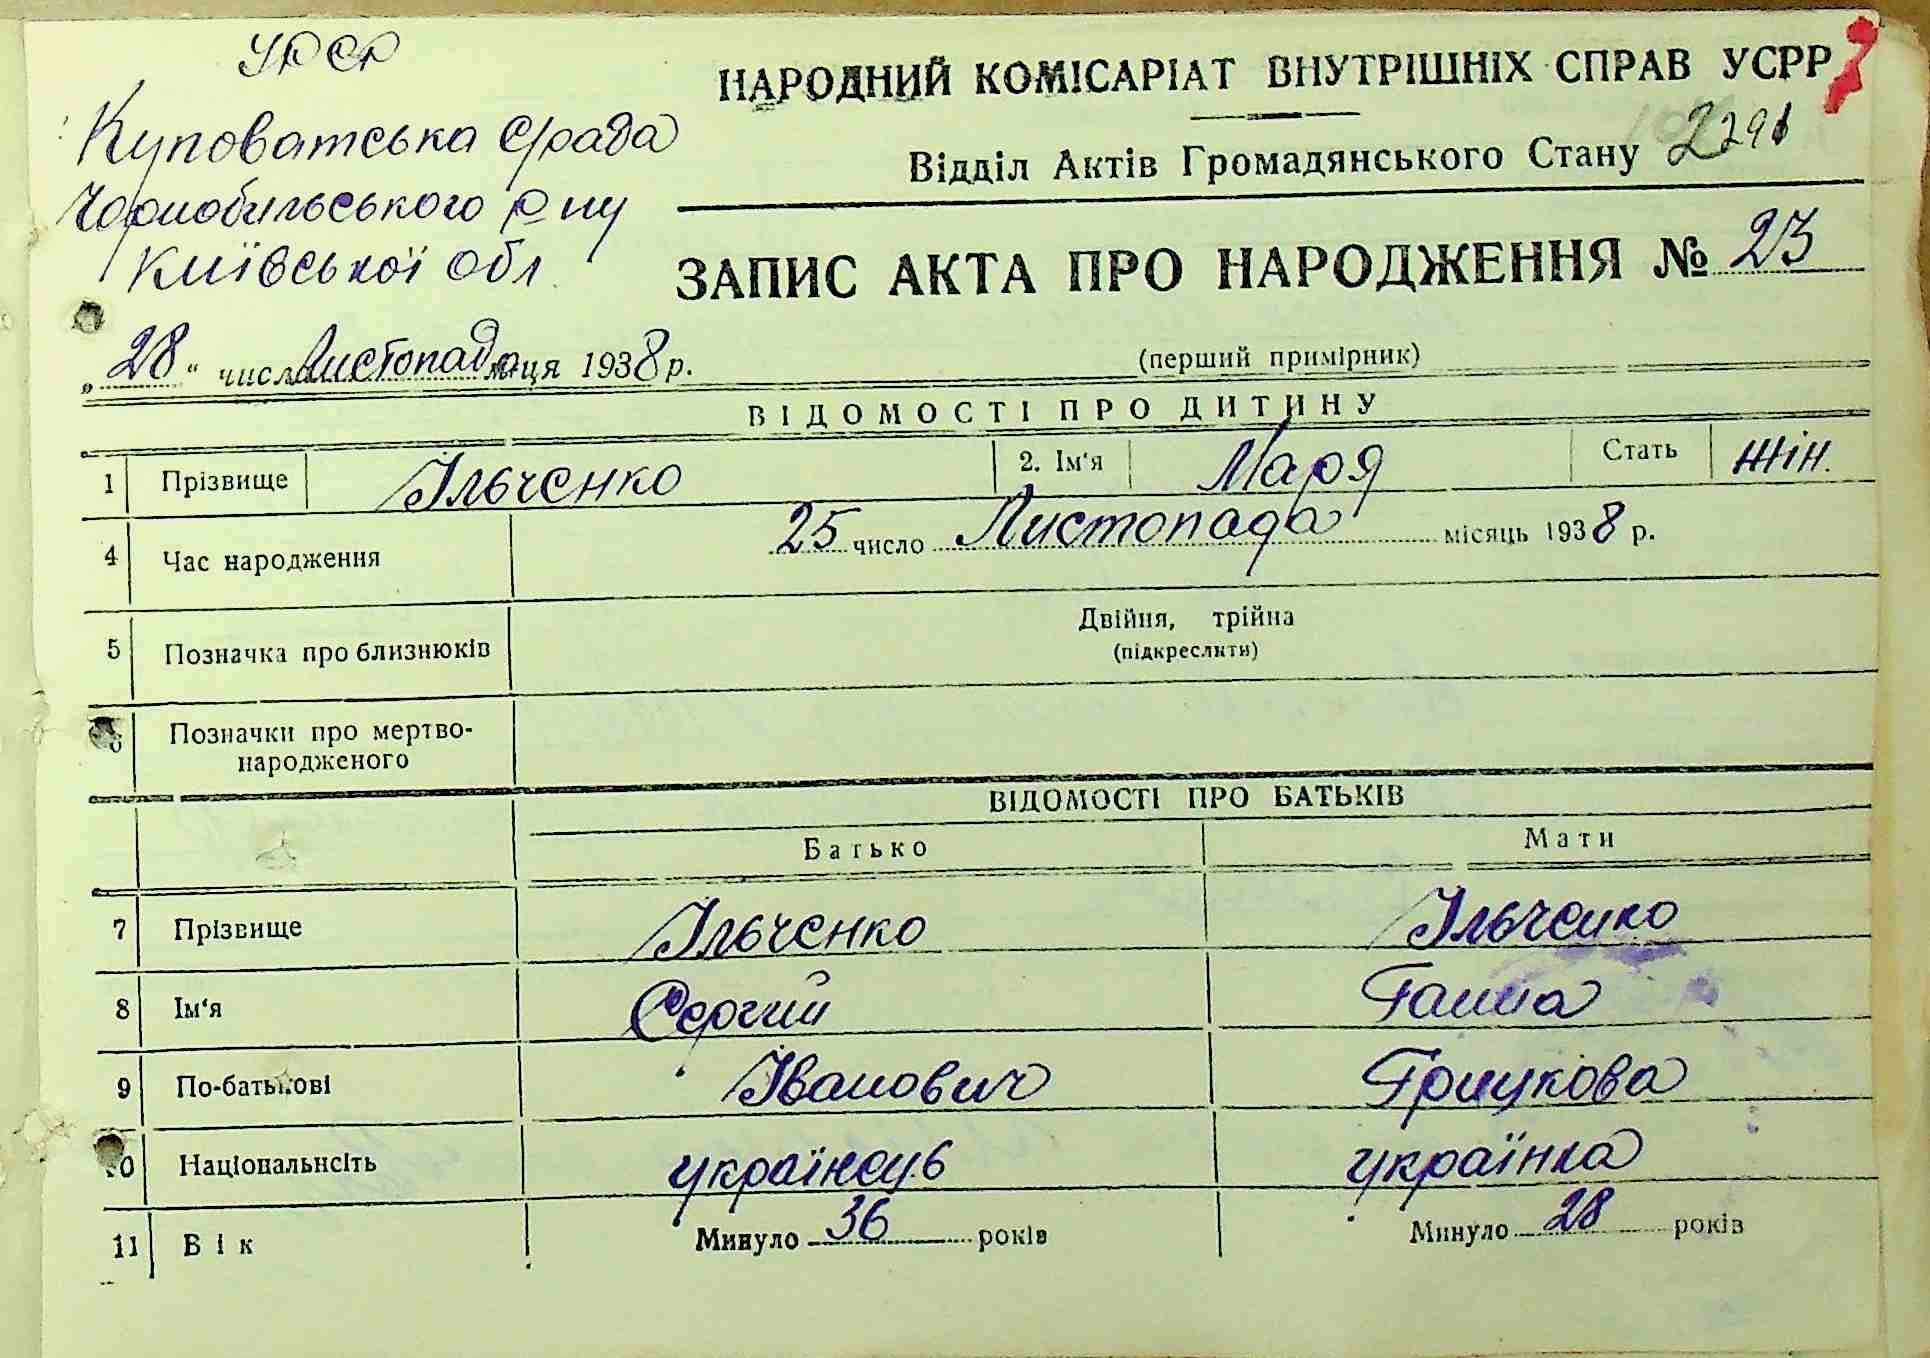 УРСР
Куповатська с/рада
Чорнобильського р-ну
Київської обл
НАРОДНИЙ КОМІСАРІАТ ВНУТРІШНІХ СПРАВ УСРР
Відділ Актів Громадянського Стану
ЗАПИС АКТА ПРО НАРОДЖЕННЯ № 23
„28“ числа Листопада м-ця 1938 р.
(перший примірник)
ВІДОМОСТІ ПРО ДИТИНУ
1 Прізвище Ільченко 2. Ім'я Маря Стать жін.
4 Час народження 25 число Листопада місяць 1938 р.
5 Позначка про близнюків Двійня, трійна
(підкреслити)
6 Позначки про мертво-
народженого
ВІДОМОСТІ ПРО БАТЬКІВ
Батько Мати
7 Прізвище Ільченко Ільченко
8 Ім'я Сергий Ганна
9 По-батькові Іванович Грицкова
10 Національнсіть українець українка
11 Вік Минуло 36 років Минуло 28 років